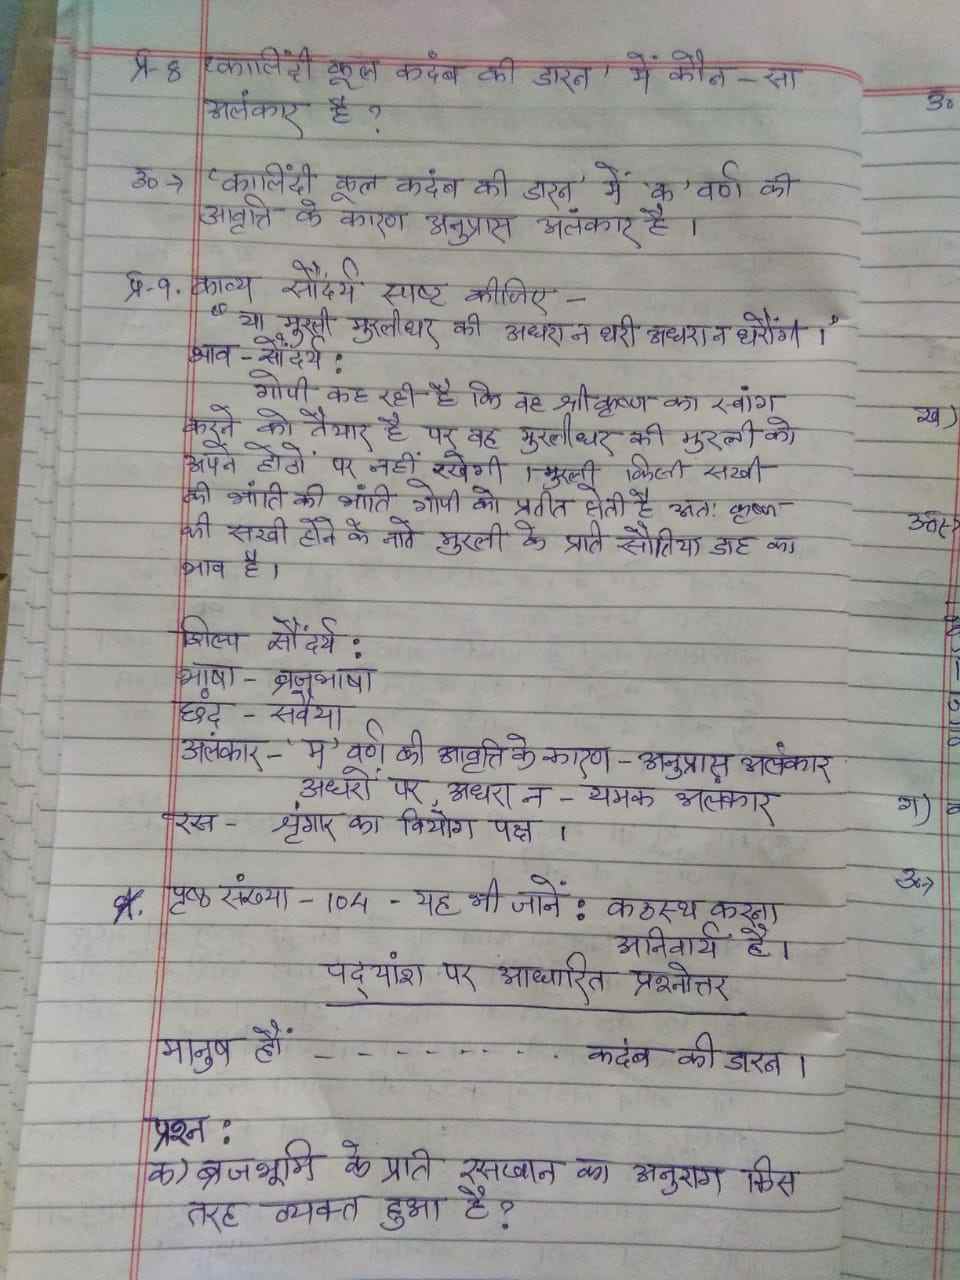 प्र-8 'कालिंदी कूल कदंब की डारन' में कौन-सा
अलंकार है ?
उ०→ 'कालिंदी कूल कदंब की डारन' में 'क' वर्ण की
आवृत्ति के कारण अनुप्रास अलंकार है ।
प्र-9. काव्य सौंदर्य स्पष्ट कीजिए -
" या मुरली मुरलीधर की अधरा न धरी अधरा न धरौंगी ।"
भाव - सौंदर्य :
गोपी कह रही है कि वह श्रीकृष्ण का स्वांग
करने को तैयार है पर वह मुरलीधर की मुरली को
अपने होठों पर नहीं रखेगी । मुरली किसी सखी
की भांति की भांति गोपी को प्रतीत होती है अतः कृष्ण
की सखी होने के नाते मुरली के प्रति सौतिया डाह का
भाव है ।
शिल्प सौंदर्य :
भाषा - ब्रजभाषा
छंद - सवैया
अलंकार - 'म' वर्ण की आवृत्ति के कारण - अनुप्रास अलंकार
अधरों पर, अधरा न - यमक अलंकार
रस - श्रृंगार का वियोग पक्ष ।
पृष्ठ संख्या - 104 - यह भी जानें : कठस्थ करना
अनिवार्य है ।
पद्यांश पर आधारित प्रश्नोत्तर
मानुष हौं - - - - - - - - - कदंब की डारन ।
प्रश्न :
क) ब्रजभूमि के प्रति रसखान का अनुराग किस
तरह व्यक्त हुआ है ?
उ०
ख)
ग)
उ०→